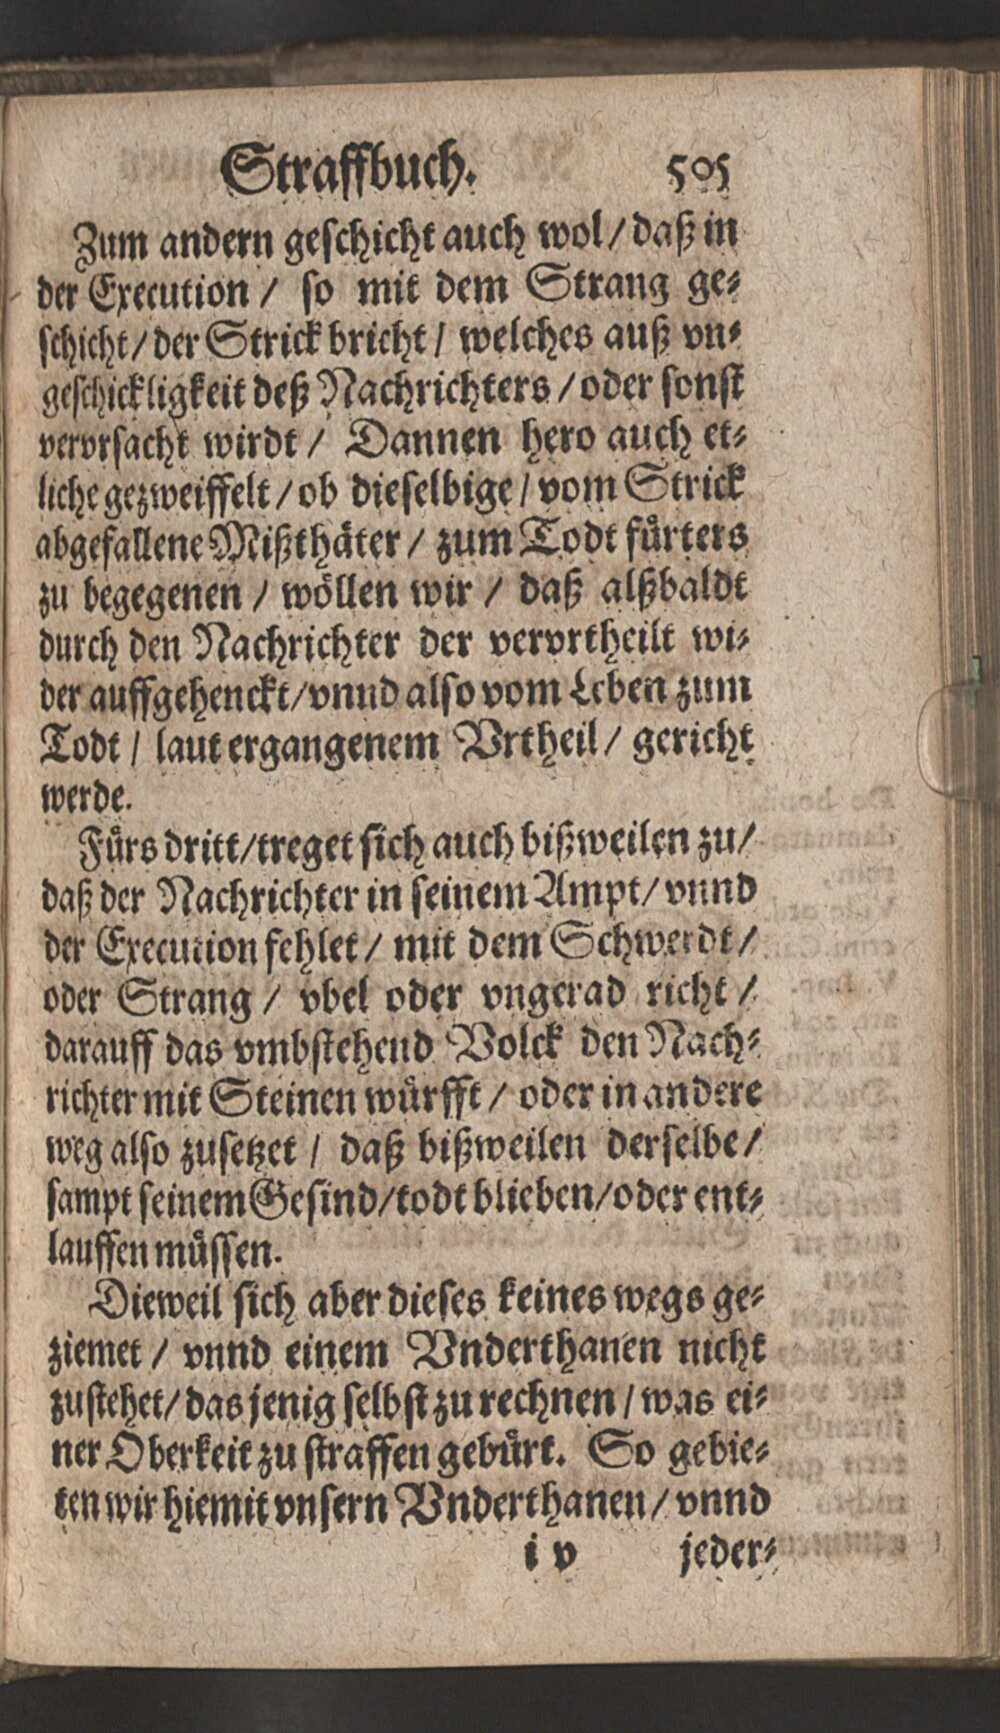 Straffbuch. 505
Zum andern geschicht auch wol / daß in
der Execution / so mit dem Strang ge-
schicht / der Strick bricht / welches auß vn-
geschickligkeit deß Nachrichters / oder sonst
vervrsacht wirdt / Dannen hero auch et-
liche gezweiffelt / ob dieselbige / vom Strick
abgefallene Mißthäter / zum Todt fürters
zu begegenen / wöllen wir / daß alßbaldt
durch den Nachrichter der vervrtheilt wi-
der auffgehenckt / vnnd also vom Leben zum
Todt / laut ergangenem Vrtheil / gericht
werde.
Fürs dritt / treget sich auch bißweilen zu /
daß der Nachrichter in seinem Ampt / vnnd
der Execution fehlet / mit dem Schwerdt /
oder Strang / vbel oder vngerad richt /
darauff das vmbstehend Volck den Nach-
richter mit Steinen würfft / oder in andere
weg also zusetzet / daß bißweilen derselbe /
sampt seinem Gesind / todt blieben / oder ent-
lauffen müssen.
Dieweil sich aber dieses keines wegs ge-
ziemet / vnnd einem Vnderthanen nicht
zustehet / das jenig selbst zu rechnen / was ei-
ner Oberkeit zu straffen gebürt. So gebie-
ten wir hiemit vnsern Vnderthanen / vnnd
i v jeder-